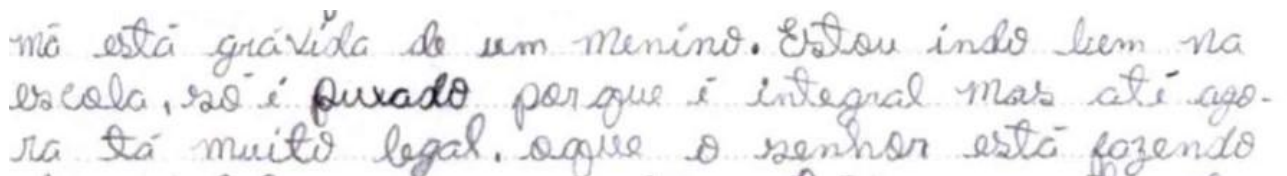 mã está grávida de um menino. Estou indo bem na
escola, só é puxado porque é integral mas até ago-
ra tá muito legal. oque o senhor está fazendo